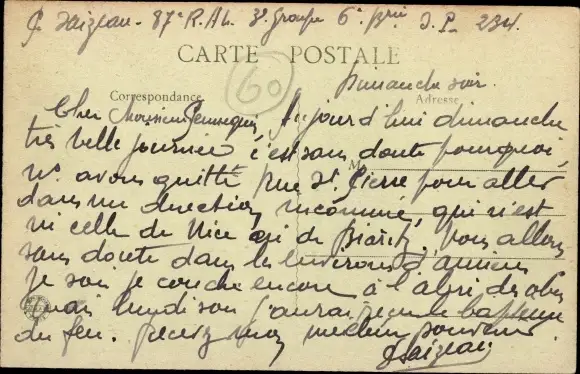 G. Faizeau - 87e R.A.L. 3e groupe 6e Brie S.P. 234.
CARTE POSTALE
60
Dimanche soir.
Correspondance Adresse
Cher Monsieur Aujourd'hui dimanche
très belle journée c'est sans doute pourquoi,
M
ns. avons quitté Rue St. Pierre pour aller
dans une direction inconnue, qui n'est
ni celle de Nice ni de Biaritz. Nous allons
sans doute dans les environs d'Amiens
Ce soir je couche encore à l'abri des obus
mais lundi soir j'aurai reçu le baptême
du feu. Recevez mon meilleur souvenir
G Faizeau